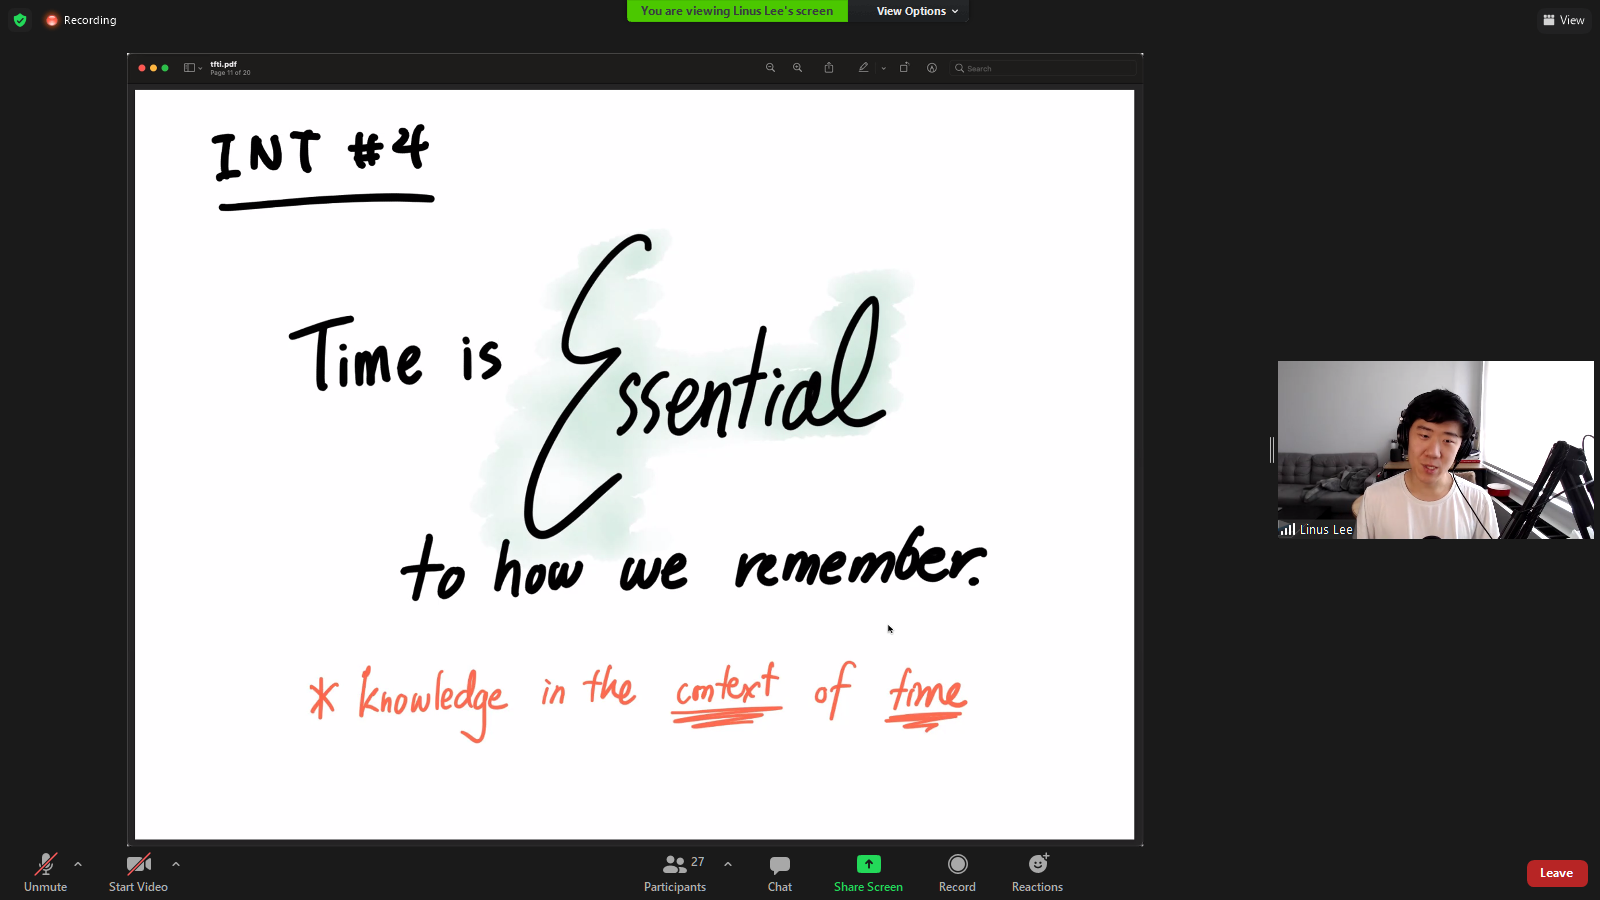 Recording
You are viewing Linus Lee's screen
View Options
View
tfti.pdf
Page 11 of 20
Search
INT #4
Time is Essential
to how we remember.
* knowledge in the context of time
Linus Lee
Unmute
Start Video
Participants
27
Chat
Share Screen
Record
Reactions
Leave